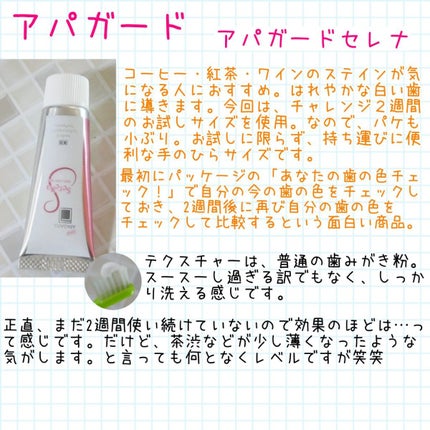 アパガード
アパガードセレナ
コーヒー・紅茶・ワインのステインが気
になる人におすすめ。はれやかな白い歯
に導きます。今回は、チャレンジ2週間
のお試しサイズを使用。なので、パケも
小ぶり。お試しに限らず、持ち運びに便
利な手のひらサイズです。
最初にパッケージの「あなたの歯の色チェ
ック！」で自分の今の歯の色をチェックし
ておき、2週間後に再び自分の歯の色を
チェックして比較するという面白い商品。
テクスチャーは、普通の歯みがき粉。
スースーし過ぎる訳でもなく、しっか
り洗える感じです。
正直、まだ2週間使い続けていないので効果のほどは…って
感じです。だけど、茶渋などが少し薄くなったような
気がします。と言っても何となくレベルですが笑笑